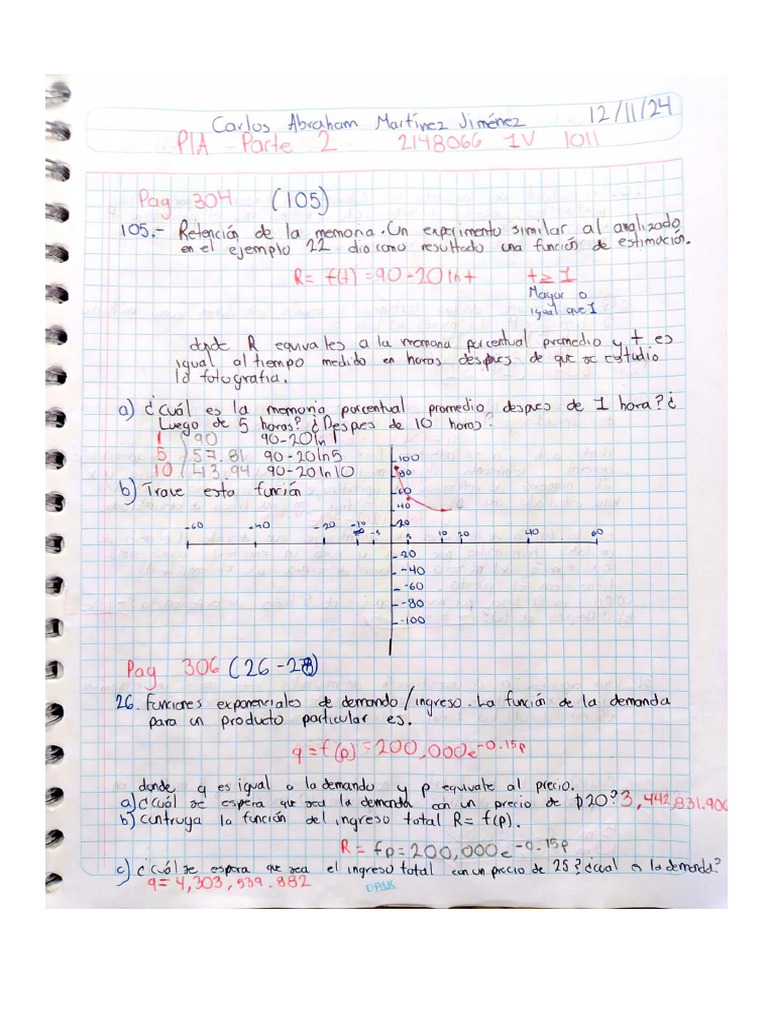 Carlos Abraham Martínez Jiménez 12/11/24
PIA Parte 2 2148066 1V 1011
Pag 304 (105)
105.- Retención de la memoria. Un experimento similar al analizado
en el ejemplo 22 dio como resultado una función de estimación.
R= f(t) = 90 - 20 ln t t ≥ 1
Mayor o
igual que 1
donde R equivales a la memoria porcentual promedio y t es
igual al tiempo medido en horas despues de que se estudio
la fotografia.
a) ¿Cuál es la memoria porcentual promedio, despues de 1 hora? ¿
Luego de 5 horas? ¿Despues de 10 horas?
1 90 90-20 ln 1
5 57.81 90-20 ln 5
10 43.94 90-20 ln 10
b) Trace esta función
100
80
60
40
20
-60 -40 -20 -10 -5 5 10 20 40 60
-20
-40
-60
-80
-100
Pag 306 (26-28)
26. Funciones exponenciales de demanda/ingreso. La función de la demanda
para un producto particular es.
q = f(p) = 200,000e^-0.15p
donde q es igual a la demanda y p equivale al precio.
a) ¿Cuál se espera que sea la demanda con un precio de $20? 3,442,831.906
b) Contruya la función del ingreso total R= f(p).
R = fp = 200,000e^-0.15p
c) ¿Cuál se espera que sea el ingreso total con un precio de 25? ¿cual es la demanda?
q = 4,303,539.882